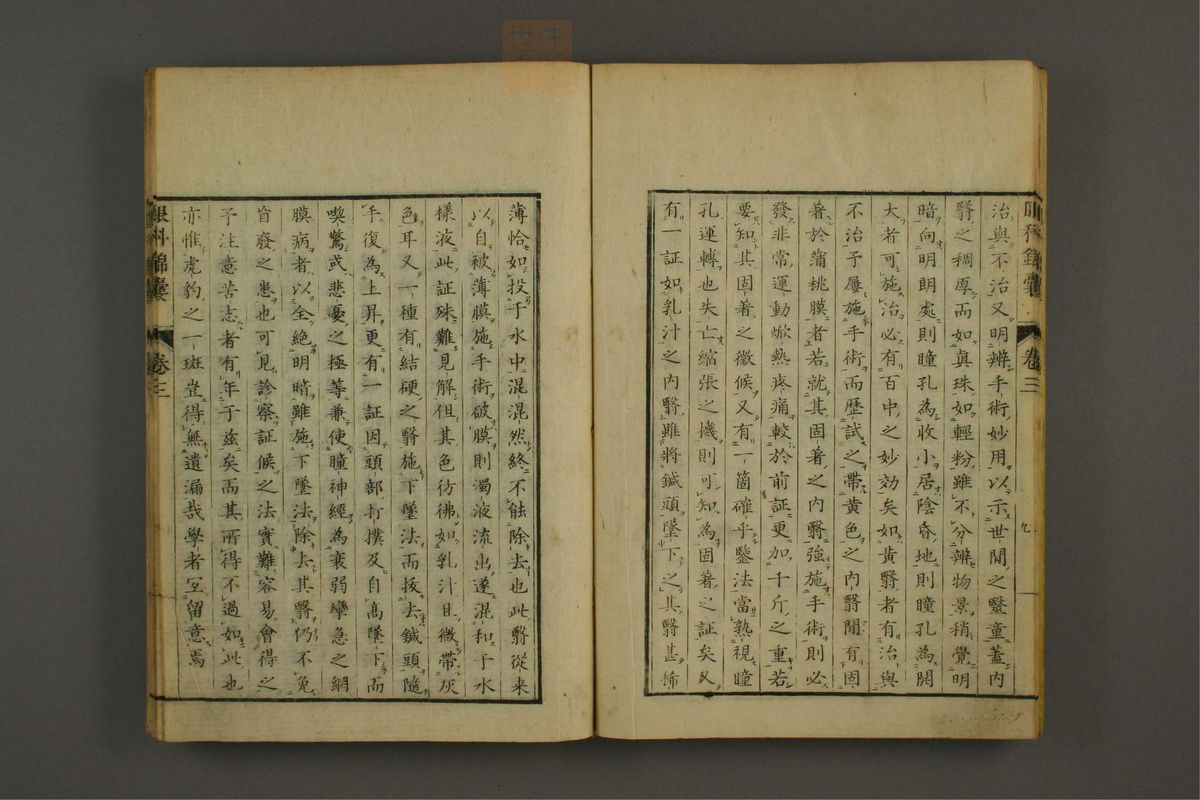 眼科錦囊 卷三 九
治與不治又明辨手術妙用以示世間之毉童蓋内
翳之稠厚而如眞珠如輕粉雖不分辨物景稍覺明
暗向明朗處則瞳孔為收小居陰昏地則瞳孔為開
大者可施治必有百中之妙効矣如黄翳者有治與
不治予屢施手術而歷試之帶黄色之内翳間有固
著於蒲桃膜者若就其固著之内翳強施手術則必
發非常運動焮熱疼痛較於前証更加千斤之重若
要知其固著之徵候又有一箇確乎鑒法當熟視瞳
孔運轉也失亡縮張之機則可知為固著之証矣又
有一証如乳汁之内翳雖將鍼頭墜下之其翳甚怖
薄恰如投于水中混混然終不能除去也此翳從来
以自被薄膜施手術破膜則濁液流出遂混和于水
樣液此証殊難見解但其色彷彿如乳汁且微帶灰
色耳又一種有結硬之翳施下墜法而拔去鍼頭隨
手復為上昇更有一証因頭部打撲及自高墜下而
喫驚或悲憂之極等兼使瞳神經為衰弱攣急之網
膜病者以全絶明暗雖施下墜法除去其翳仍不免
盲廢之患也可見診察証候之法實難容易會得之
予注意苦志者有年于茲矣而其所得不過如此也
亦惟虎豹之一斑豈得無遺漏哉學者宜留意焉
眼科錦囊 卷三